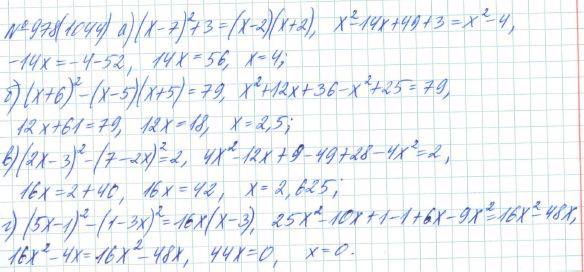 №978(1044) а) (x-7)²+3=(x-2)(x+2), x²-14x+49+3=x²-4,
-14x=-4-52, 14x=56, x=4;
б) (x+6)²-(x-5)(x+5)=79, x²+12x+36-x²+25=79,
12x+61=79, 12x=18, x=2,5;
в) (2x-3)²-(7-2x)²=2, 4x²-12x+9-49+28-4x²=2,
16x=2+40, 16x=42, x=2,625;
г) (5x-1)²-(1-3x)²=16x(x-3), 25x²-10x+1-1+6x-9x²=16x²-48x,
16x²-4x=16x²-48x, 44x=0, x=0.